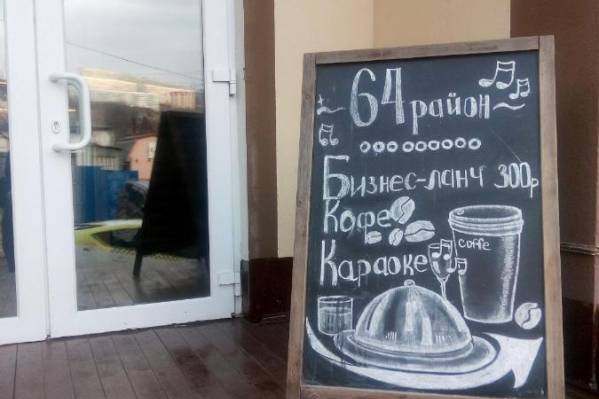 64 район
Бизнес-ланч 300р
Кофе
Караоке
coffe